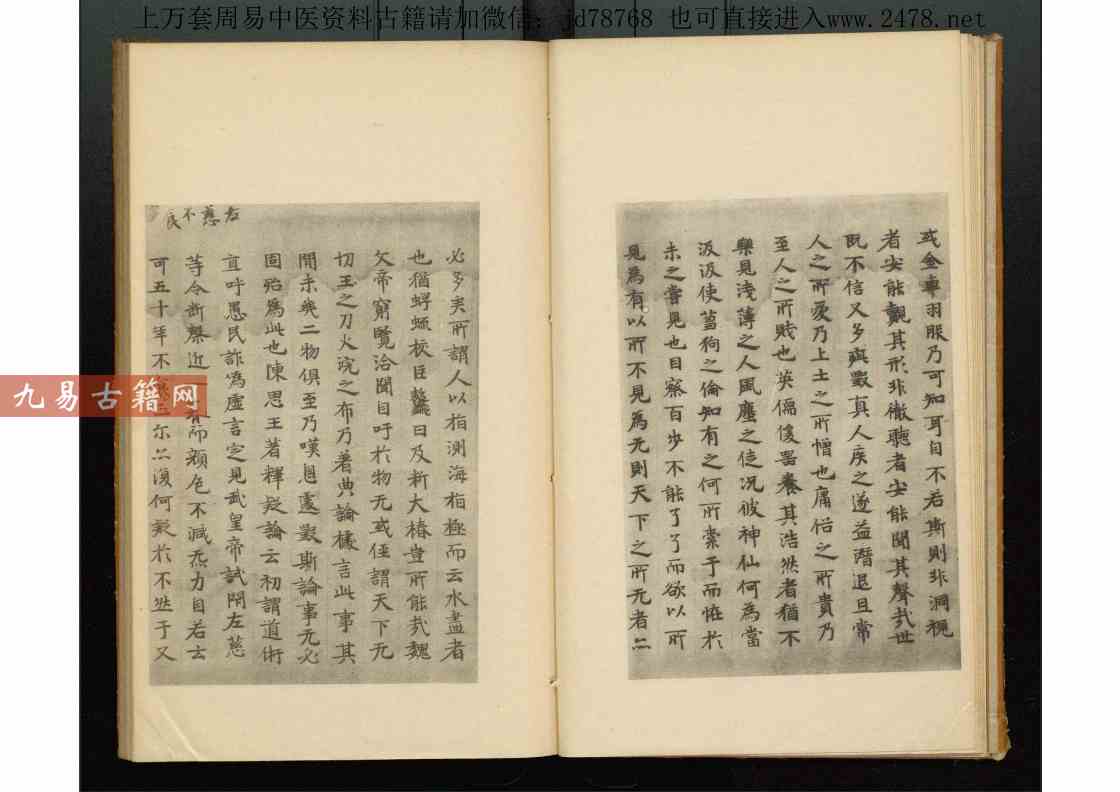 上万套周易中医资料古籍请加微信：jd78768 也可直接进入www.2478.net
或金車羽服乃可知耳自不若斯則非洞視
者安能覿其形非徹聽者安能聞其聲哉世
既不信又多疵毀真人疾之遂益潛退且常
人之所愛乃上士之所憎也庸俗之所貴乃
至人之所賤也英儒偉器養其浩然者猶不
樂見淺薄之人風塵之徒况彼神仙何為當
汲汲使蒭狗之倫知有之何所索乎而恠於
未之嘗見也目察百步不能了了而欲以所
見為有以所不見為无則天下之所无者亦
必多矣所謂人以指測海指極而云水盡者
也猶蜉蝣校巨鼇日及新大椿豈所能哉魏
文帝窮覽洽聞自吁於物无或侄謂天下无
切玉之刀火浣之布乃著典論㨾言此事其
間未幾二物俱至乃嘆息遽毀斯論事无必
固殆為此也陳思王著釋疑論云初謂道術
直呼愚民詐為虛言定見武皇帝試閇左慈
等令断糓近一月而顔色不減炁力自若云
可五十年不尔亦復何疑於不然于又
左慈不民
九易古籍网